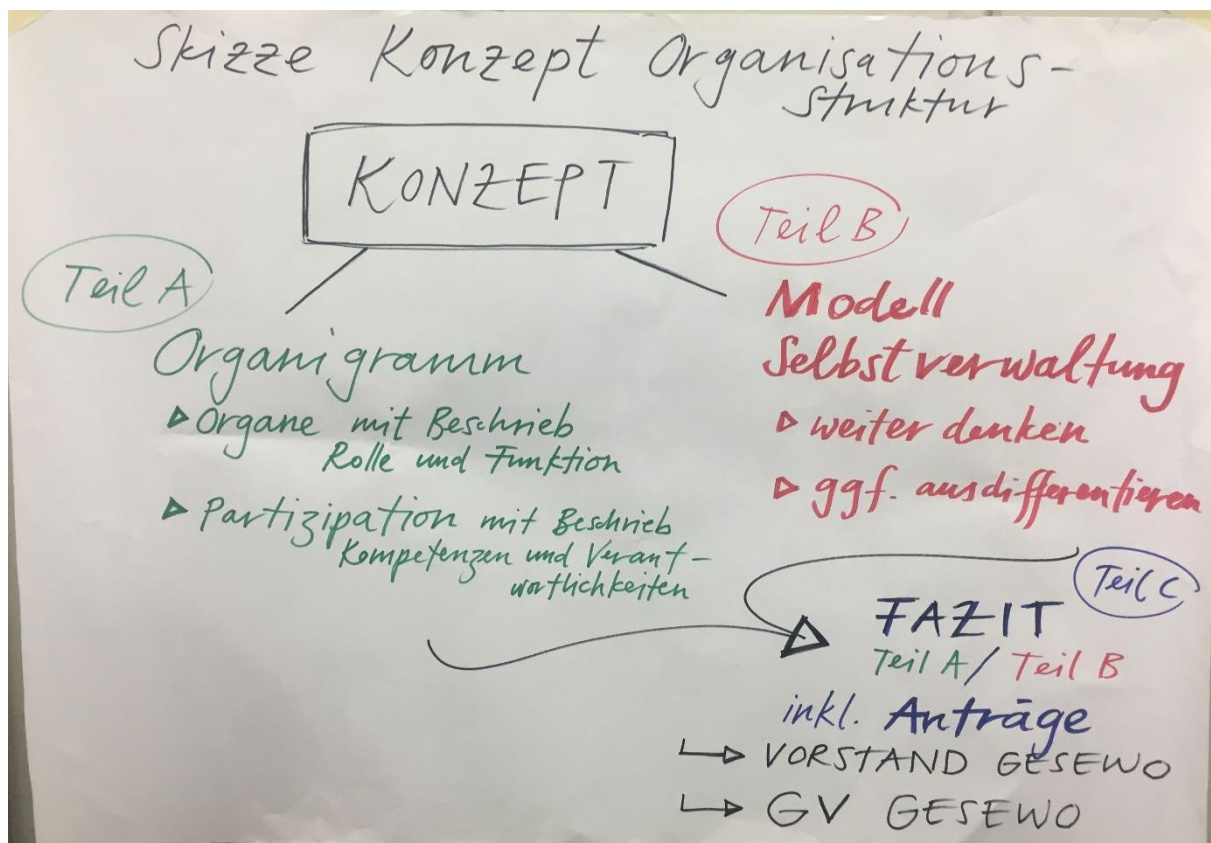 Skizze Konzept Organisations-
struktur
KONZEPT
Teil A
Organigramm
▷ Organe mit Beschrieb
Rolle und Funktion
▷ Partizipation mit Beschrieb
Kompetenzen und Verant-
wortlichkeiten
Teil B
Modell
Selbstverwaltung
▷ weiter denken
▷ ggf. ausdifferentieren
Teil C
FAZIT
Teil A / Teil B
inkl. Anträge
↳ VORSTAND GESEWO
↳ GV GESEWO